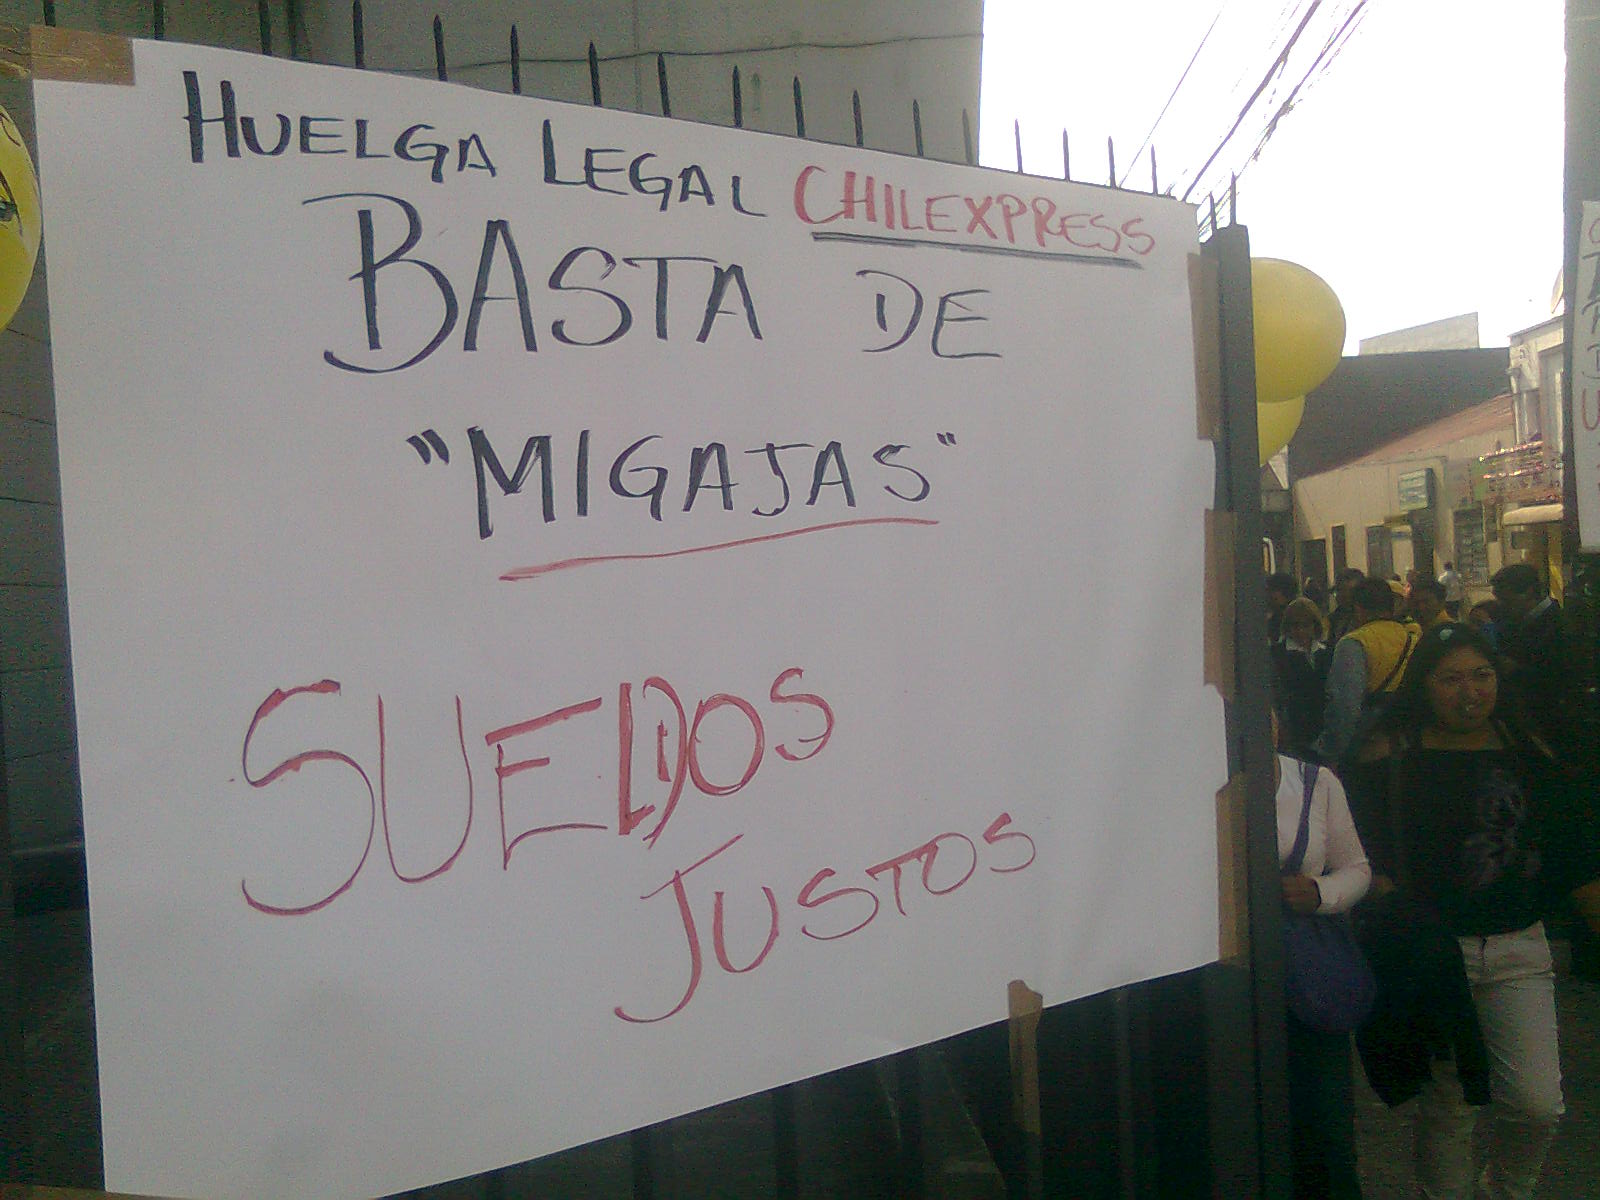 HUELGA LEGAL CHILEXPRESS
BASTA DE
"MIGAJAS"
SUELDOS
JUSTOS